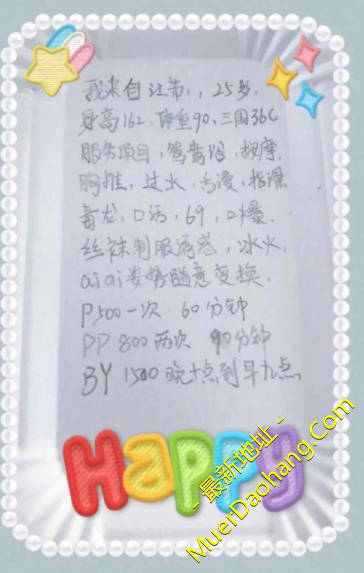 我来自江苏,,25岁.
身高162,体重90,三围36C
服务项目,鸳鸯浴,按摩,
胸推,过水,舌漫,指滑
毒龙,口活,69,口爆
丝袜制服诱惑,冰火,
aiai姿势随意变换.
P500一次 60分钟
PP 800两次 90分钟
BY 1500晚十点到早九点
HaPPY
- 最新地址 -
MuerDaohang.Com